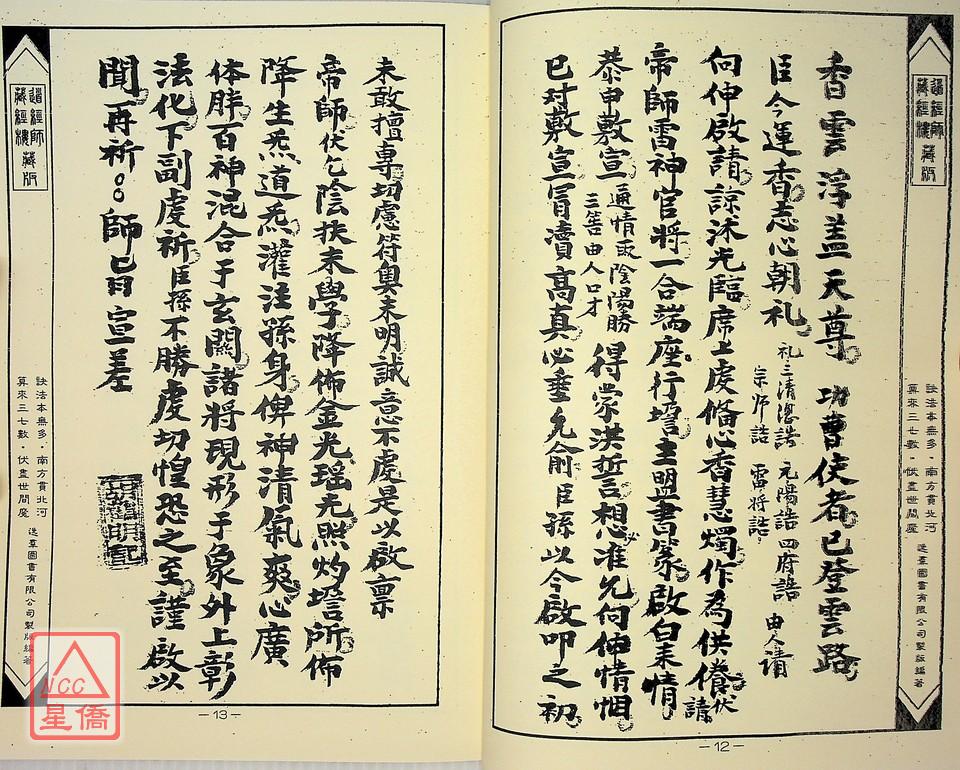 香雲浮蓋天尊 功曹使者 已登雲路
臣今運香志心朝礼 礼三清 誥 元陽誥 四府誥 宗師誥 雷將誥 由人請
向伸啟請 諒沐光臨 席上虔備心香慧燭 作為供養 伏請
帝師雷神官將一合端座 行壇主盟 書篆啟白来情
恭申敷宣 通情 陰陽勝 三筶由人口才 得蒙洪誓 想必准允 何伸情悃
已对敷宣 冐瀆高真 必垂允俞 臣孫以今啟叩之初
— 12 —
未敢擅專 切慮符奥未明 誠意不虔 是以啟禀
帝師 伏乞陰扶末學 降佈金光 瑶光照灼 壇所佈
降生炁道炁 灌注孫身 俾神清氣爽 心廣
体胖 百神混合于玄關 諸將現形于象外 上彰
法化 下副虔祈 臣孫不勝虔切惶恐之至 謹啟以
聞 再祈 師旨宣差
— 13 —
道經師
藏經樓藏版
訣法本無多．南方貫北河
算來三七數．伏盡世間魔
逸羣圖書有限公司製版編著
道經師
藏經樓藏版
訣法本無多．南方貫北河
算來三七數．伏盡世間魔
逸羣圖書有限公司製版編著
NCC
星僑